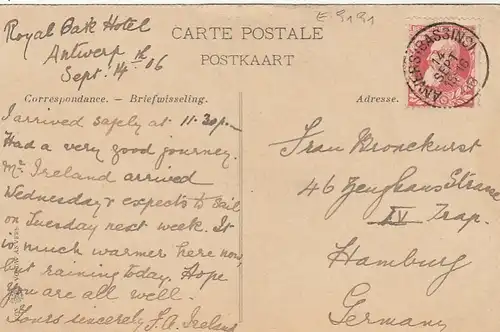 E-9191
CARTE POSTALE
POSTKAART
Royal Oak Hotel
Antwerp
Sept. 14th 06
Correspondance. – Briefwisseling.
I arrived safely at 11.30 p.m.
Had a very good journey.
Mr Ireland arrived
Wednesday & expects to sail
on Tuesday next week. It
is much warmer here now,
but raining today. Hope
you are all well.
Yours sincerely
Adresse.
Frau Bronckurst
46 Zeughaus Strasse
IV Trap.
Hamburg
Germany
ANVERS (BASSINS)
14
SEPT